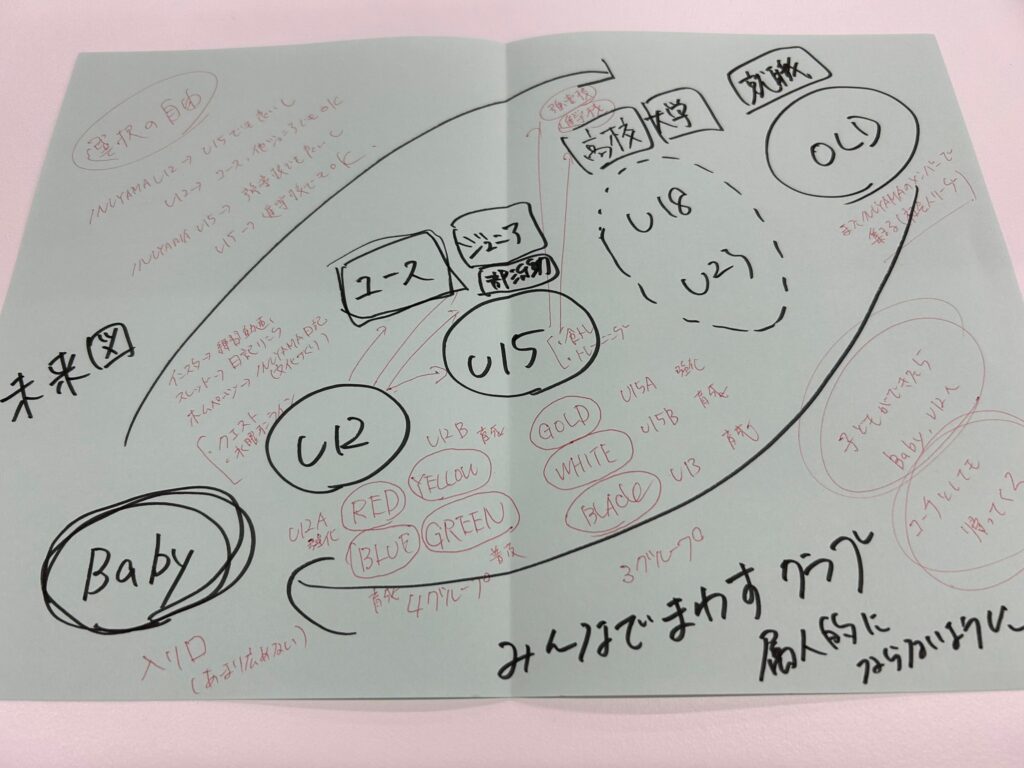 未来図
選択の自由
INUYAMA U12 → U15でも良いし
U12 → ユース、他ジュニアでもOK
INUYAMA U15 → 強豪校でも良いし
U15 → 進学校でもOK.
強豪校
進学校
高校
大学
就職
OLD
U18
U23
またINUYAMAのメンバーで
ユース
ジュニア
部活動
U15
・トレーナー
インスタ → 練習動画、
スレッド → 日記リンク
ホームページ → INUYAMA日記
(文化づくり)
・クエスト
U12
Baby
入り口
(あまり広めない)
U12A
強化
RED
U12B 育成
YELLOW
BLUE
育成
GREEN
普及
4グループ
GOLD
U15A 強化
WHITE
U15B 育成
BLACK
U13 育成
3グループ
子どもができたら
Baby、U12へ
コーチとしても
帰ってくる
みんなでまわすクラブ
属人的に
ならないように